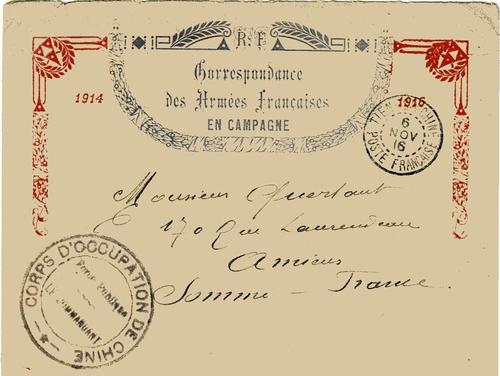 R.F
Correspondance
des Armées Françaises
EN CAMPAGNE
1914
1916
TIEN CHINE
6
NOV
16
POSTE FRANÇAISE
Monsieur
170 Rue Laurendeau
Amiens
Somme - France
CORPS D'OCCUPATION DE CHINE
LE COMMANDANT